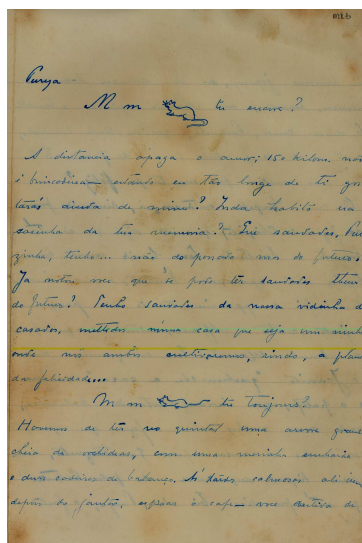 Purya
M m tu encore?
A distancia apaga o amor; 150 kilom. não
é brincadeira — estando eu tão longe de ti gos
tarás ainda de mim? Inda habito na
casinha da tua memoria? Que saudades, Pur
zinha, tenho... não do passado mas do futuro.
Ja notou voce que se pode ter saudades
do futuro? Tenho saudades da nossa vidinha de
casados, mettidos numa casa que seja um ninho
onde nos ambos cultivaremos, rindo, a planta
da felicidade...
M m tu toujours?
Havemos de ter no quintal uma arvore grande
cheia de orchideas, com uma mesinha embaixo
e duas cadeiras de balanço. Ás tardes calmosas ali
depois do jantar, o café — voce